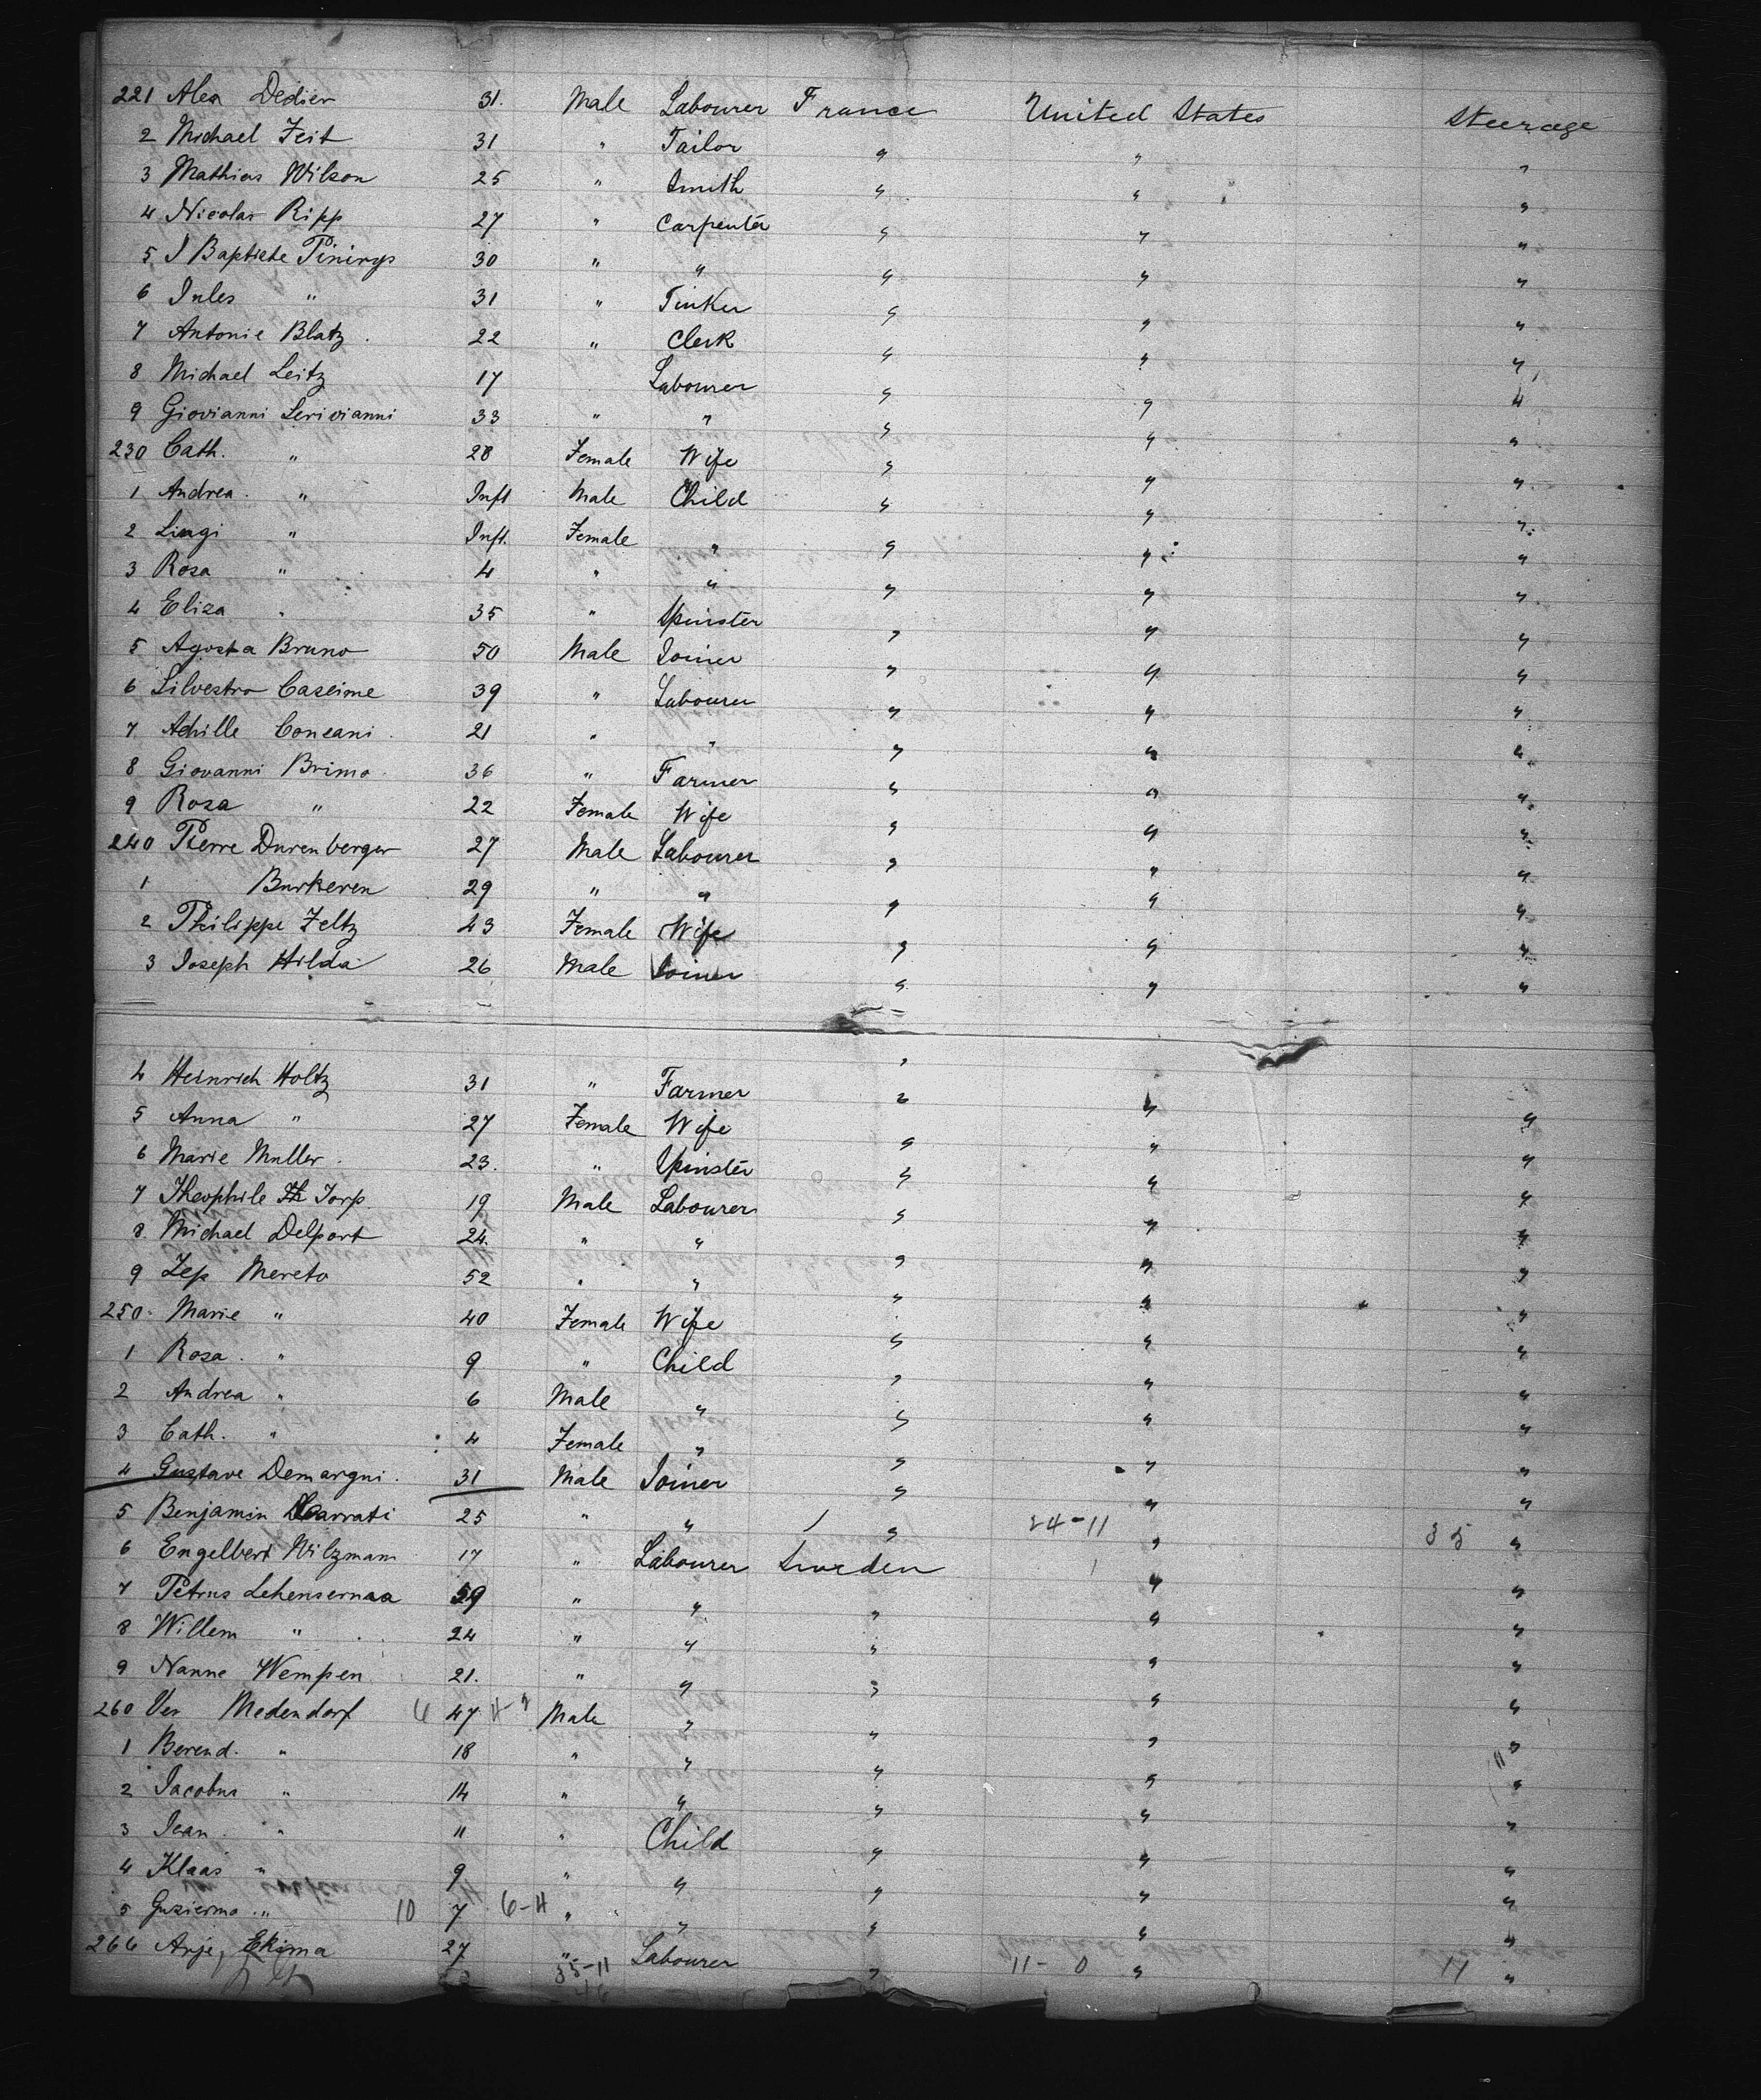 221 Alea Dedier 31. Male Labourer France United States Steerage
2 Michael Zeit 31 " Tailor " " "
3 Mathias Wilson 25 " Smith " " "
4 Nicolas Ripp 27 " Carpenter " " "
5 J Baptiste Pinirys 30 " " " " "
6 Jules " 31 " Tinker " " "
7 Antonie Blatz. 22 " Clerk " " "
8 Michael Leitz 17 Labourer " " "
9 Giovianni Serivianni 33 " " " " "
230 Cath. " 28 Female Wife " " "
1 Andrea. " Inft Male Child " " "
2 Liugi " Inft. Female " " " "
3 Rosa " 4 " " " " "
4 Eliza " 35 " Spinster " " "
5 Agosta Bruno 50 Male Joiner " " "
6 Silvestro Caseime 39 " Labourer " " "
7 Achille Coneani. 21 " " " " "
8 Giovanni Brimo. 36 " Farmer " " "
9 Rosa " 22 Female Wife " " "
240 Pierre Durenberger 27 Male Labourer " " "
1 Burkeren 29 " " " " "
2 Philippe Zeltz 43 Female Wife " " "
3 Joseph Hilda 26 Male Joiner " " "
4 Heinrich Holtz 31 " Farmer " "
5 Anna " 27 Female Wife " " "
6 Marie Muller. 23. " Spinster " " "
7 Theophile Th Jorp. 19 Male Labourer " " "
8. Michael Delport 24. " " " " "
9 Zep Mereto 52 " " " " "
250. Marie " 40 Female Wife " " "
1 Rosa. " 9 " Child " " "
2 Andrea " 6 Male " " " "
3 Cath. " 4 Female " " " "
4 Gustave Demargni. 31 Male Joiner " " "
5 Benjamin Carrati 25 " " / " 24-11 " 35 "
6 Engelbert Wilzmam 17 " Labourer Sweden " "
7 Petrus Lehensernaa 59 " " " " "
8 Willem " 24 " " " " "
9 Nanne Wempen 21. " " " " "
260 Ver Medendorf 47 Male " " " "
1 Berend. " 18 " " " " " 11
2 Jacobus " 14 " " " " "
3 Jean " 11 " Child " " "
4 Klaas " 9 " " " " "
5 Guzierma " 10 7 6-4 " " " " "
266 Arje, Ekima 27 " Labourer " 11-0 " 11 "
35-11